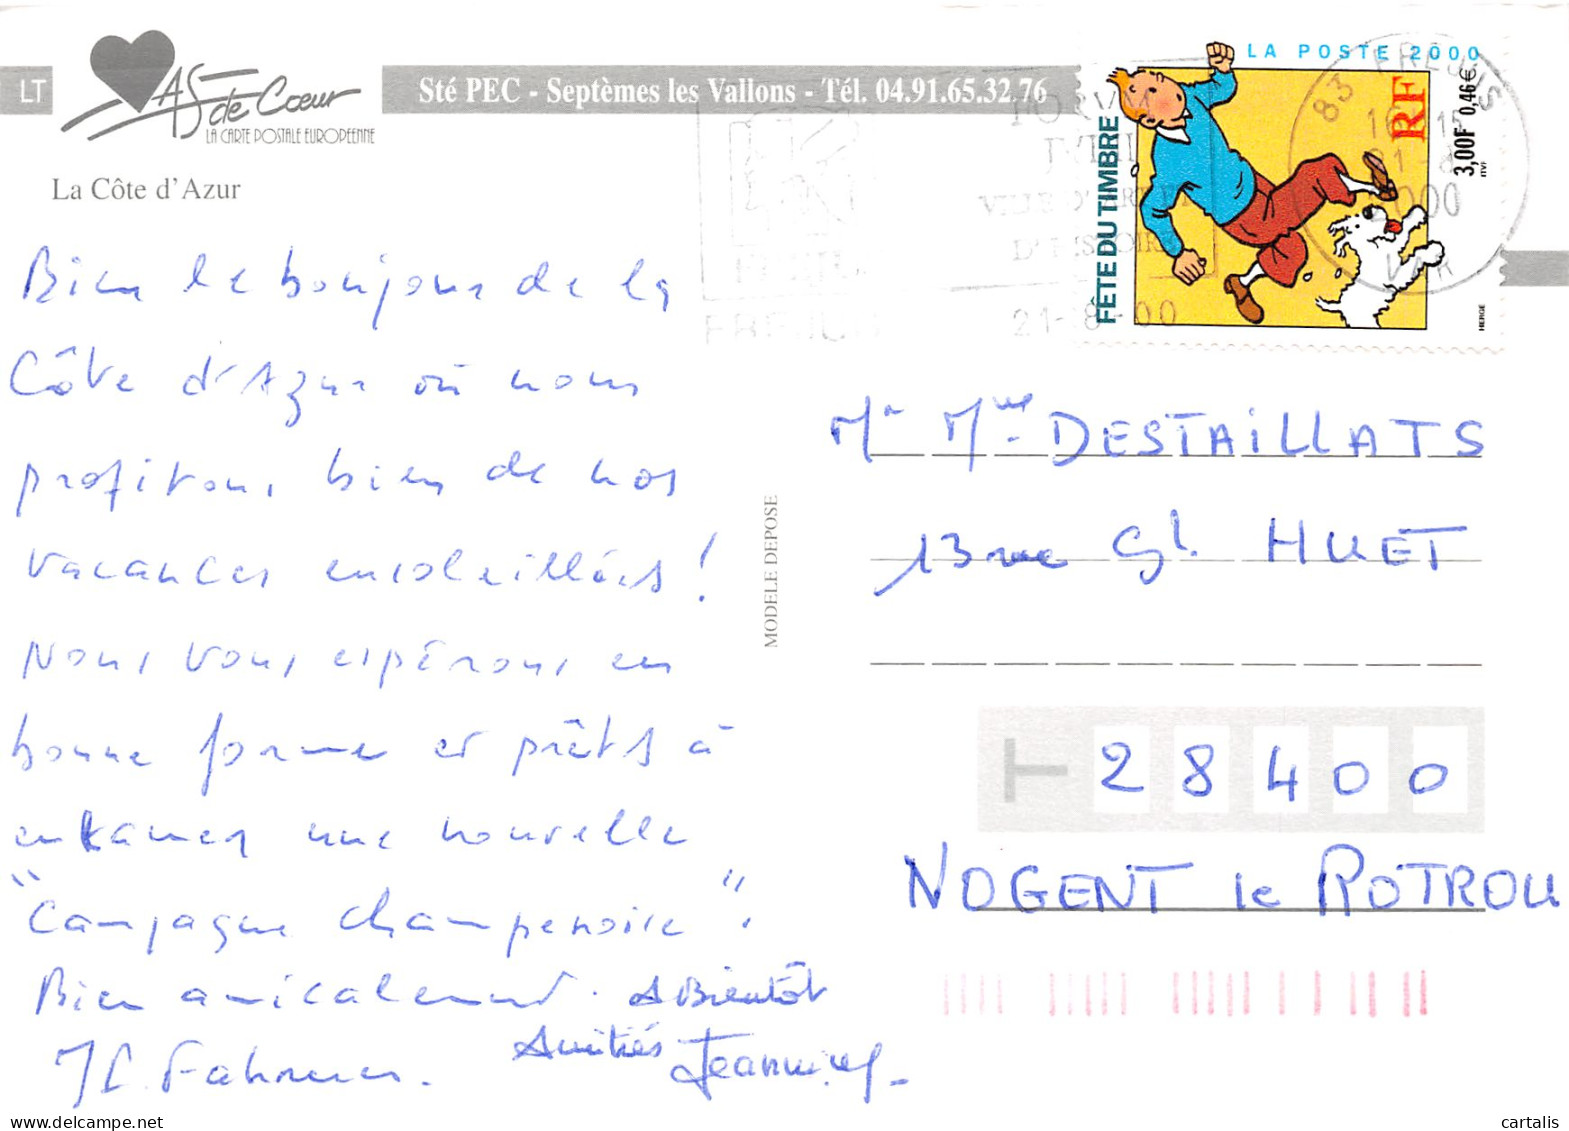 LT
AS de Cœur
LA CARTE POSTALE EUROPEENNE
Sté PEC - Septèmes les Vallons - Tél. 04.91.65.32.76
La Côte d'Azur
Bien le bonjour de la
Côte d'Azur où nous
profitons bien de nos
vacances ensoleillées !
Nous vous espérons en
bonne forme et prêts à
entamer une nouvelle
"Campagne champenoise".
Bien amicalement. A Bientôt
Amitiés
JC. Fahrner. Jeannine
MODELE DEPOSE
LA POSTE 2000
FÊTE DU TIMBRE
RF
3,00F 0,46€
ITVF
HERGE
83 FREJUS
2000
VAR
FORUM
JULII
VILLE D'ART ET
D'HISTOIRE
FREJUS
21-8-00
Mr Mme DESTAILLATS
13 rue Gl. HUET
28400
NOGENT le ROTROU
cartalis